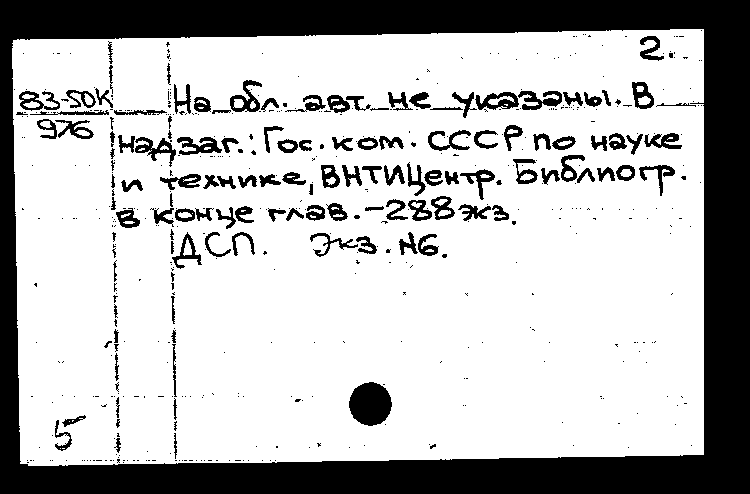 2.
83-50К
976
На обл. авт. не указаны. В
надзаг.: Гос. ком. СССР по науке
и технике, ВНТИЦентр. Библиогр.
в конце глав. - 288 экз.
ДСП. Экз. N6.
5